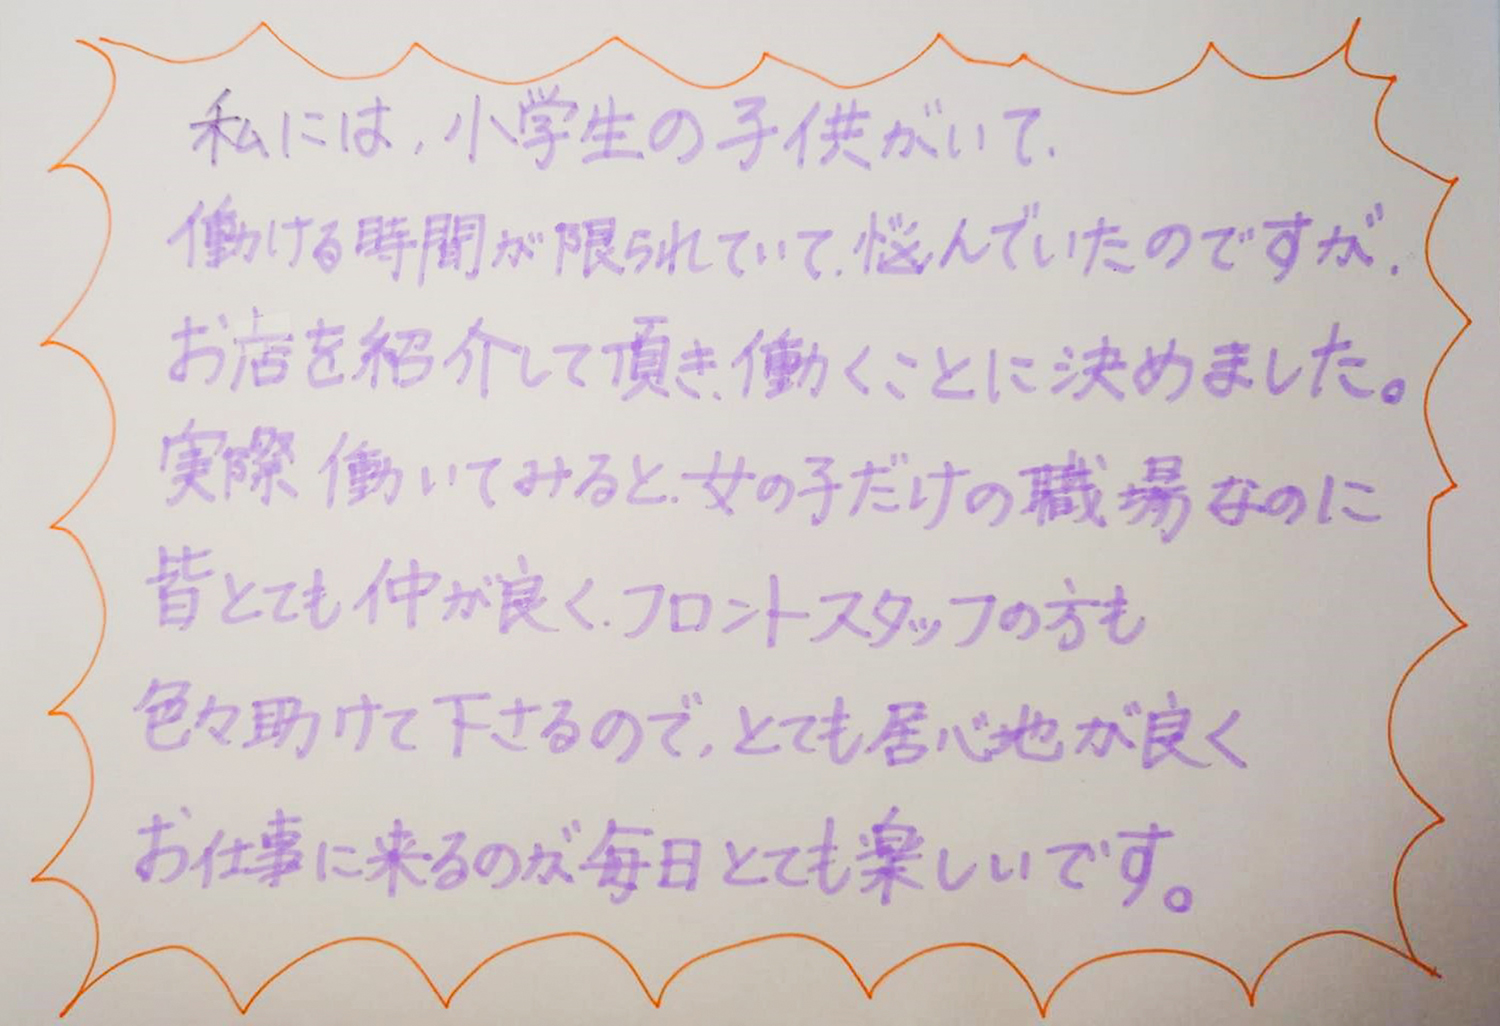 私には、小学生の子供がいて、
働ける時間が限られていて、悩んでいたのですが、
お店を紹介して頂き、働くことに決めました。
実際働いてみると、女の子だけの職場なのに
皆とても仲が良く、フロントスタッフの方も
色々助けて下さるので、とても居心地が良く
お仕事に来るのが毎日とても楽しいです。